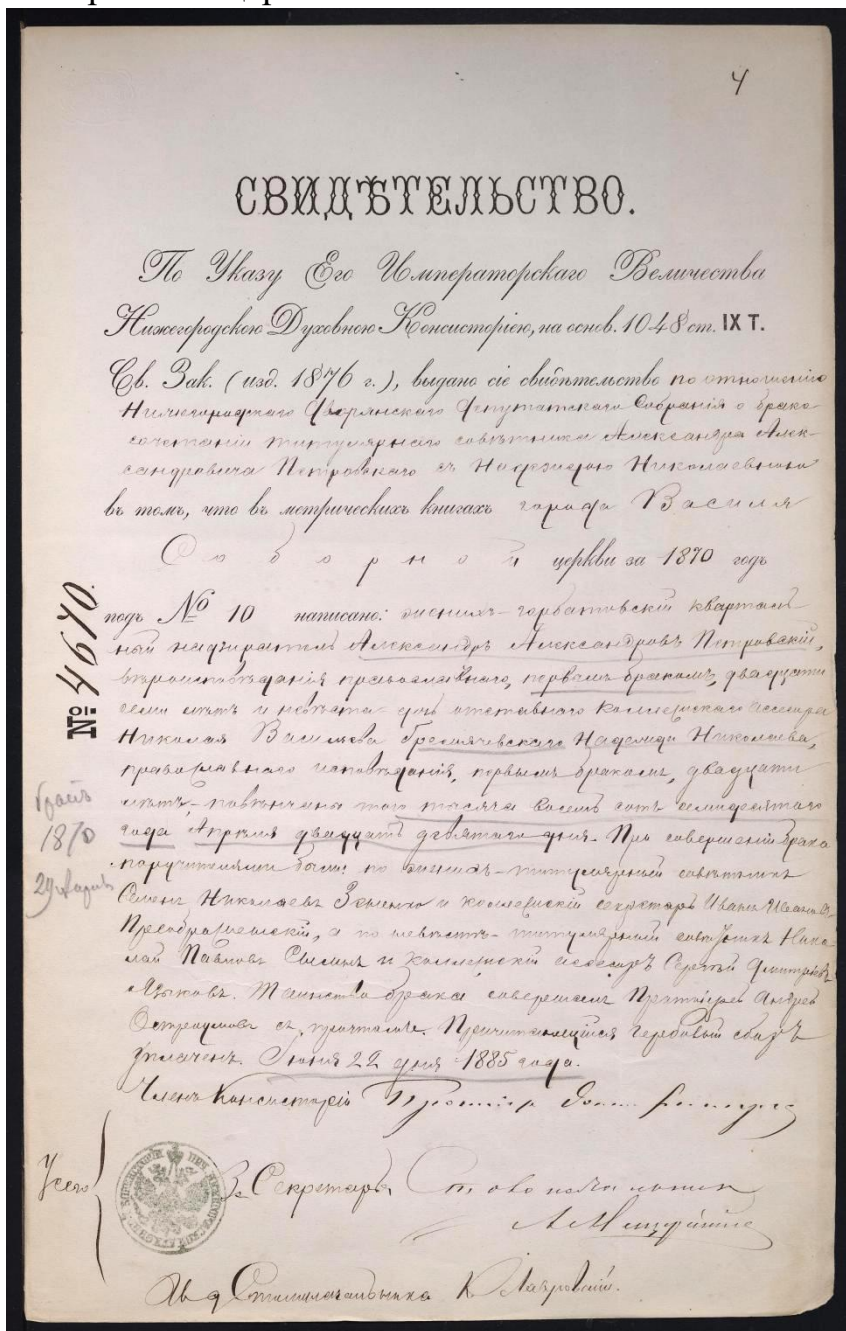 4
СВИДѢТЕЛЬСТВО.
По Указу Его Императорскаго Величества
Нижегородскою Духовною Консисторіею, на основ. 1048 ст. IX Т.
Св. Зак. (изд. 1876 г.), выдано сіе свидѣтельство по отношенію
Нижегородскаго Дворянскаго Депутатскаго Собранія о брако-
сочетаніи титулярнаго совѣтника Александра Алек-
сандровича Петровскаго съ Надеждою Николаевною
въ томъ, что въ метрическихъ книгахъ города Василя
Соборной церкви за 1870 годъ
подъ № 10 написано: женихъ - горбатовскій квартал-
ный надзиратель Александръ Александровъ Петровскій,
вѣроисповѣданія православнаго, первымъ бракомъ, двадцати
семи лѣтъ и невѣста - дочь отставнаго Коллежскаго Ассесора
Николая Васильева Надежда Николаева,
православнаго исповѣданія, первымъ бракомъ, двадцати
лѣтъ, - повѣнчаны того тысяча восемь сотъ семидесятаго
года Апрѣля двадцать девятаго дня. При совершеніи брака
поручителями были: по женихѣ - титулярный совѣтникъ
Семенъ Николаевъ и коллежскій секретарь Иванъ Ивановъ
Преображенскій, а по невѣстѣ - титулярный совѣтникъ Нико-
лай Павловъ и коллежскій ассесоръ Сергѣй Дмитріевъ
Языковъ. Таинство брака совершалъ Протоіерей Андрей
Остроумовъ съ причтомъ. Причитающійся гербовый сборъ
уплаченъ. Іюня 22 дня 1885 года.
№ 4670.
1870
29 Апрѣл
Членъ Консисторіи Протоіерей
За Секретаря Столоначальникъ
И. д. Столоначальника К. Лавровскій.